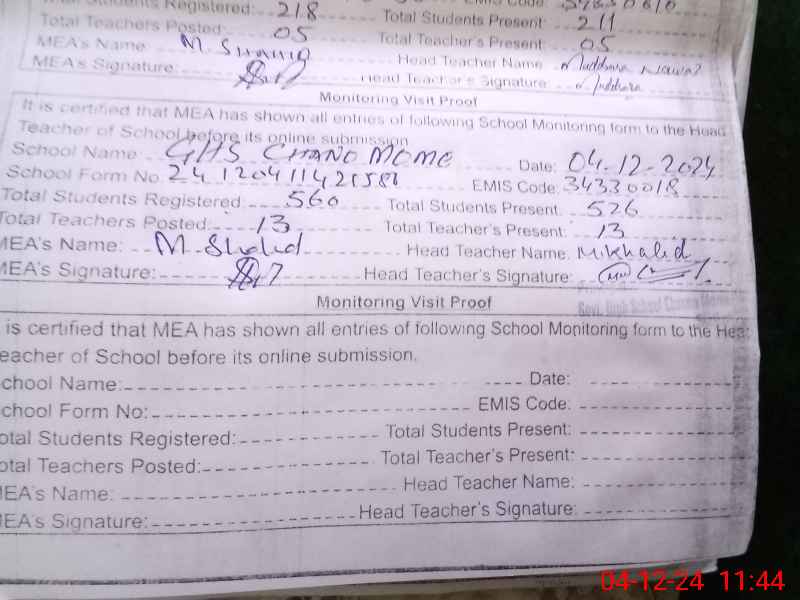 Students Registered: 218 Total Students Present: 211
Total Teachers Posted: 05 Total Teacher's Present: 05
MEA's Name: M. Head Teacher Name
MEA's Signature: Head Teacher's Signature:
Monitoring Visit Proof
It is certified that MEA has shown all entries of following School Monitoring form to the Head
Teacher of School before its online submission
School Name GHS CHANO MOME Date: 04-12-2024
School Form No. EMIS Code: 34330018
Total Students Registered: 560 Total Students Present: 526
Total Teachers Posted: 13 Total Teacher's Present: 13
MEA's Name: M. Shahid Head Teacher Name. M.Khalid
MEA's Signature: Head Teacher's Signature:
Govt. High School
Monitoring Visit Proof
is certified that MEA has shown all entries of following School Monitoring form to the Hea
eacher of School before its online submission.
chool Name: Date:
chool Form No: EMIS Code:
otal Students Registered: Total Students Present:
otal Teachers Posted: Total Teacher's Present:
MEA's Name: Head Teacher Name:
MEA's Signature: Head Teacher's Signature:
04-12-24 11:44